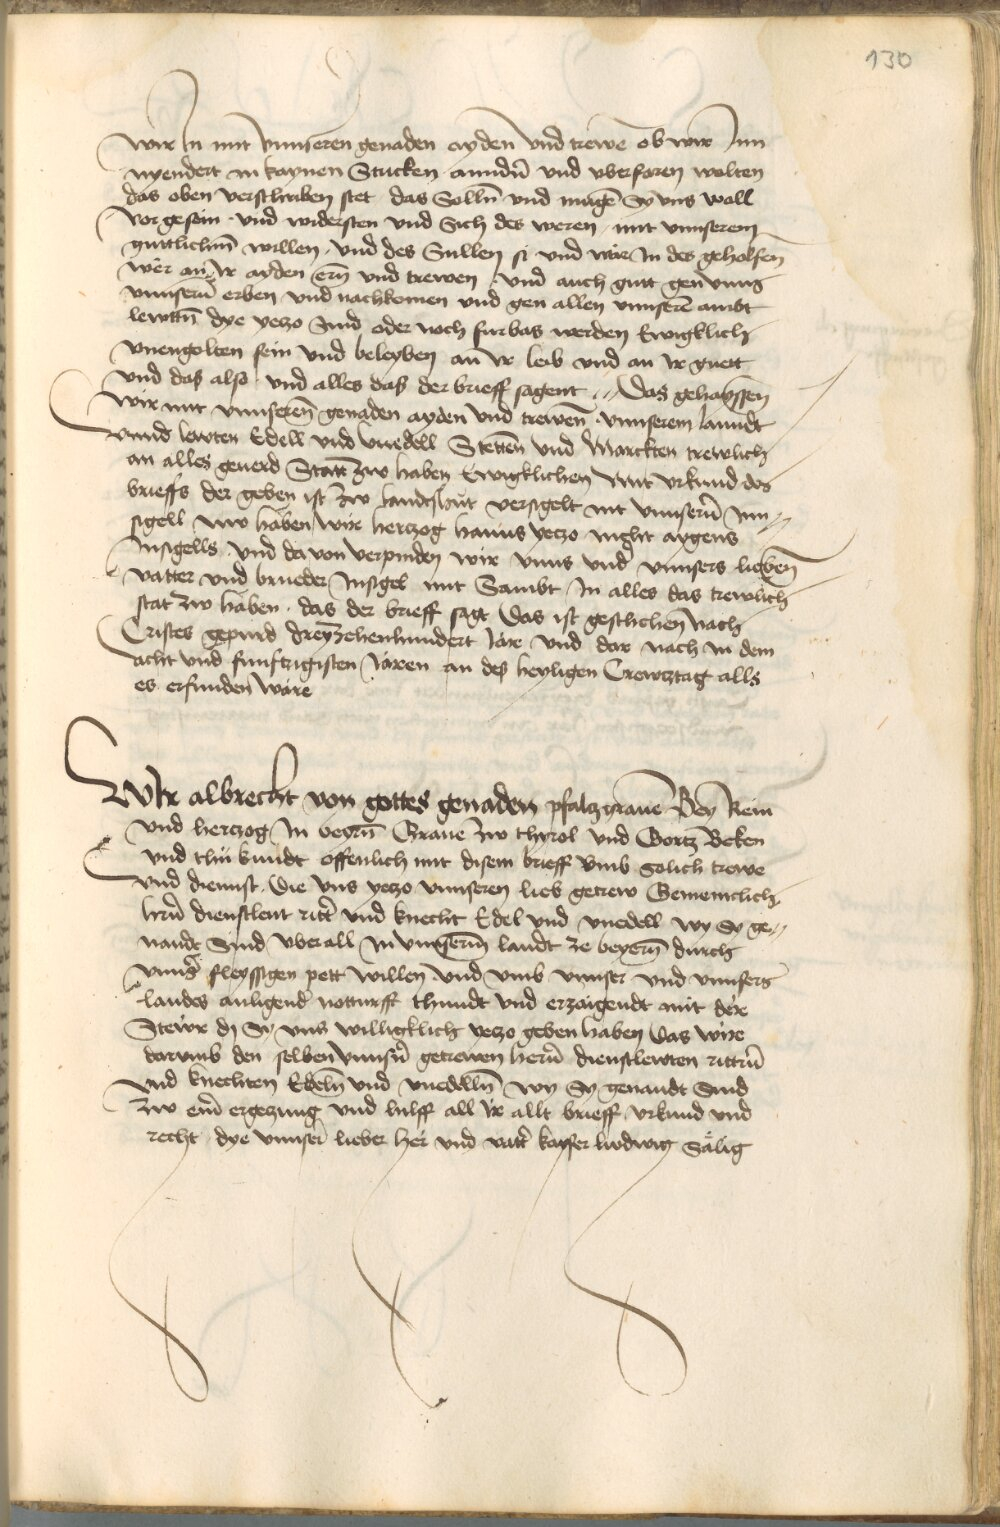 130
wir in mit vnnseren genaden ayden vnd trewe ob wir im
nyendert in kaynen Stucken anndn̄ vnd vberfaren wolten
das oben verschriben stet das Solln̄ vnd muge Sy vns woll
vor gesein vnd widersten vnd Sich des weren mit vnnserem
guttlichm̄ willen vnd des Sullen si vnd wir In des geholfen
wer an Ir ayden ern̄ vnd trewen vnd auch gutt gen vnns
vnnsern̄ erben vnd nachkomen vnd gen allen vnnsere ambt
lewttn̄ dye yetzo sind oder noch furbas werden Ewigklich
vnengolten sein vnd beleyben an Ir leib vnd an Ir guett
vnd das also vnd alles das der brieff sagent Das gehayssen
wir mit vnnseren̄ genaden ayden vnd trewen vnnserem lanndt
vnnd lewten Edell vnd vnedell Stetten vnd Marckten trewlich
an alles geuerd Statt zw haben Ewigklichen Mit vrkund des
brieffs der geben ist zw landtshut versigelt mit vnnsern̄ Inn
sigell Nw haben wir hertzog hanns yetzo nicht aygens
Insigells vnd da von verpinden wir vnns vnd vnnsers lieben̄
vatter vnd brueder Insigel mit Sambt In alles das trewlich
stat zw haben das der brieff sagt Das ist geschehen nach
Cristes gepurd dreyzehenhundert Jar vnd dar nach in dem
acht vnd funftzigisten Jaren an des heyligen Crewtztag alls
es erfunden ware
Wir albrecht von gottes genaden pfaltzgraue Bey Rein
vnd hertzog In beyrn̄ Graue zw thyrol vnd Gortz Beken
vnd thun kundt offenlich mit disem brieff vmb solich trewe
vnd diennst Die vns yetzo vnnseren lieb getrew Gemeinclich
hern̄ dienstleut ritt̄ vnd knecht Edel vnd vnedell wy Sy ge
nandt Sind vber all In vnnserm̄ landt ze beyern̄ durch
vnns̄ fleyssigen pett willen vnd vmb vnnser vnd vnnsers
landes anligend notturfft thundt vnd erzaigendt mit der
Stewr dy Sy vns willigklich yetzo geben haben Das wir
darumb den selben vnnsn̄ getrewen hern̄ dienstlewten rittrn̄
vnd knechten Edeln̄ vnd vnedelln̄ wy Sy genandt Sind
zw ein̄ ergetzung vnd hilff all Ir allt brieff vrkund vnd
recht dye vnnser lieber her vnd vatt̄ kayser ludwig Sälig